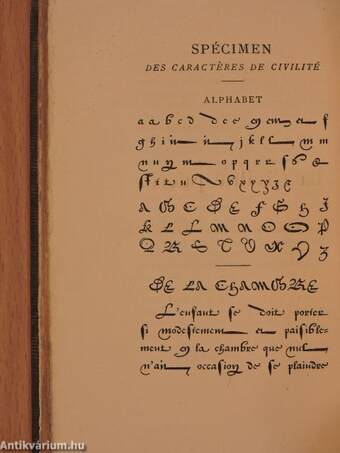 SPÉCIMEN
DES CARACTÈRES DE CIVILITÉ
ALPHABET
a a b c d d e e f
g h i n n j k l l m m
n u m o p q r r s s
t u v x y z
A B C D E F G H I
K L L M N O P
Q R S T V X Y Z
DE LA CHAMBRE
L'enfant se doit porter
si modestement et paisible-
ment en la chambre que nul
n'ait occasion de se plaindre
Antikvárium.hu